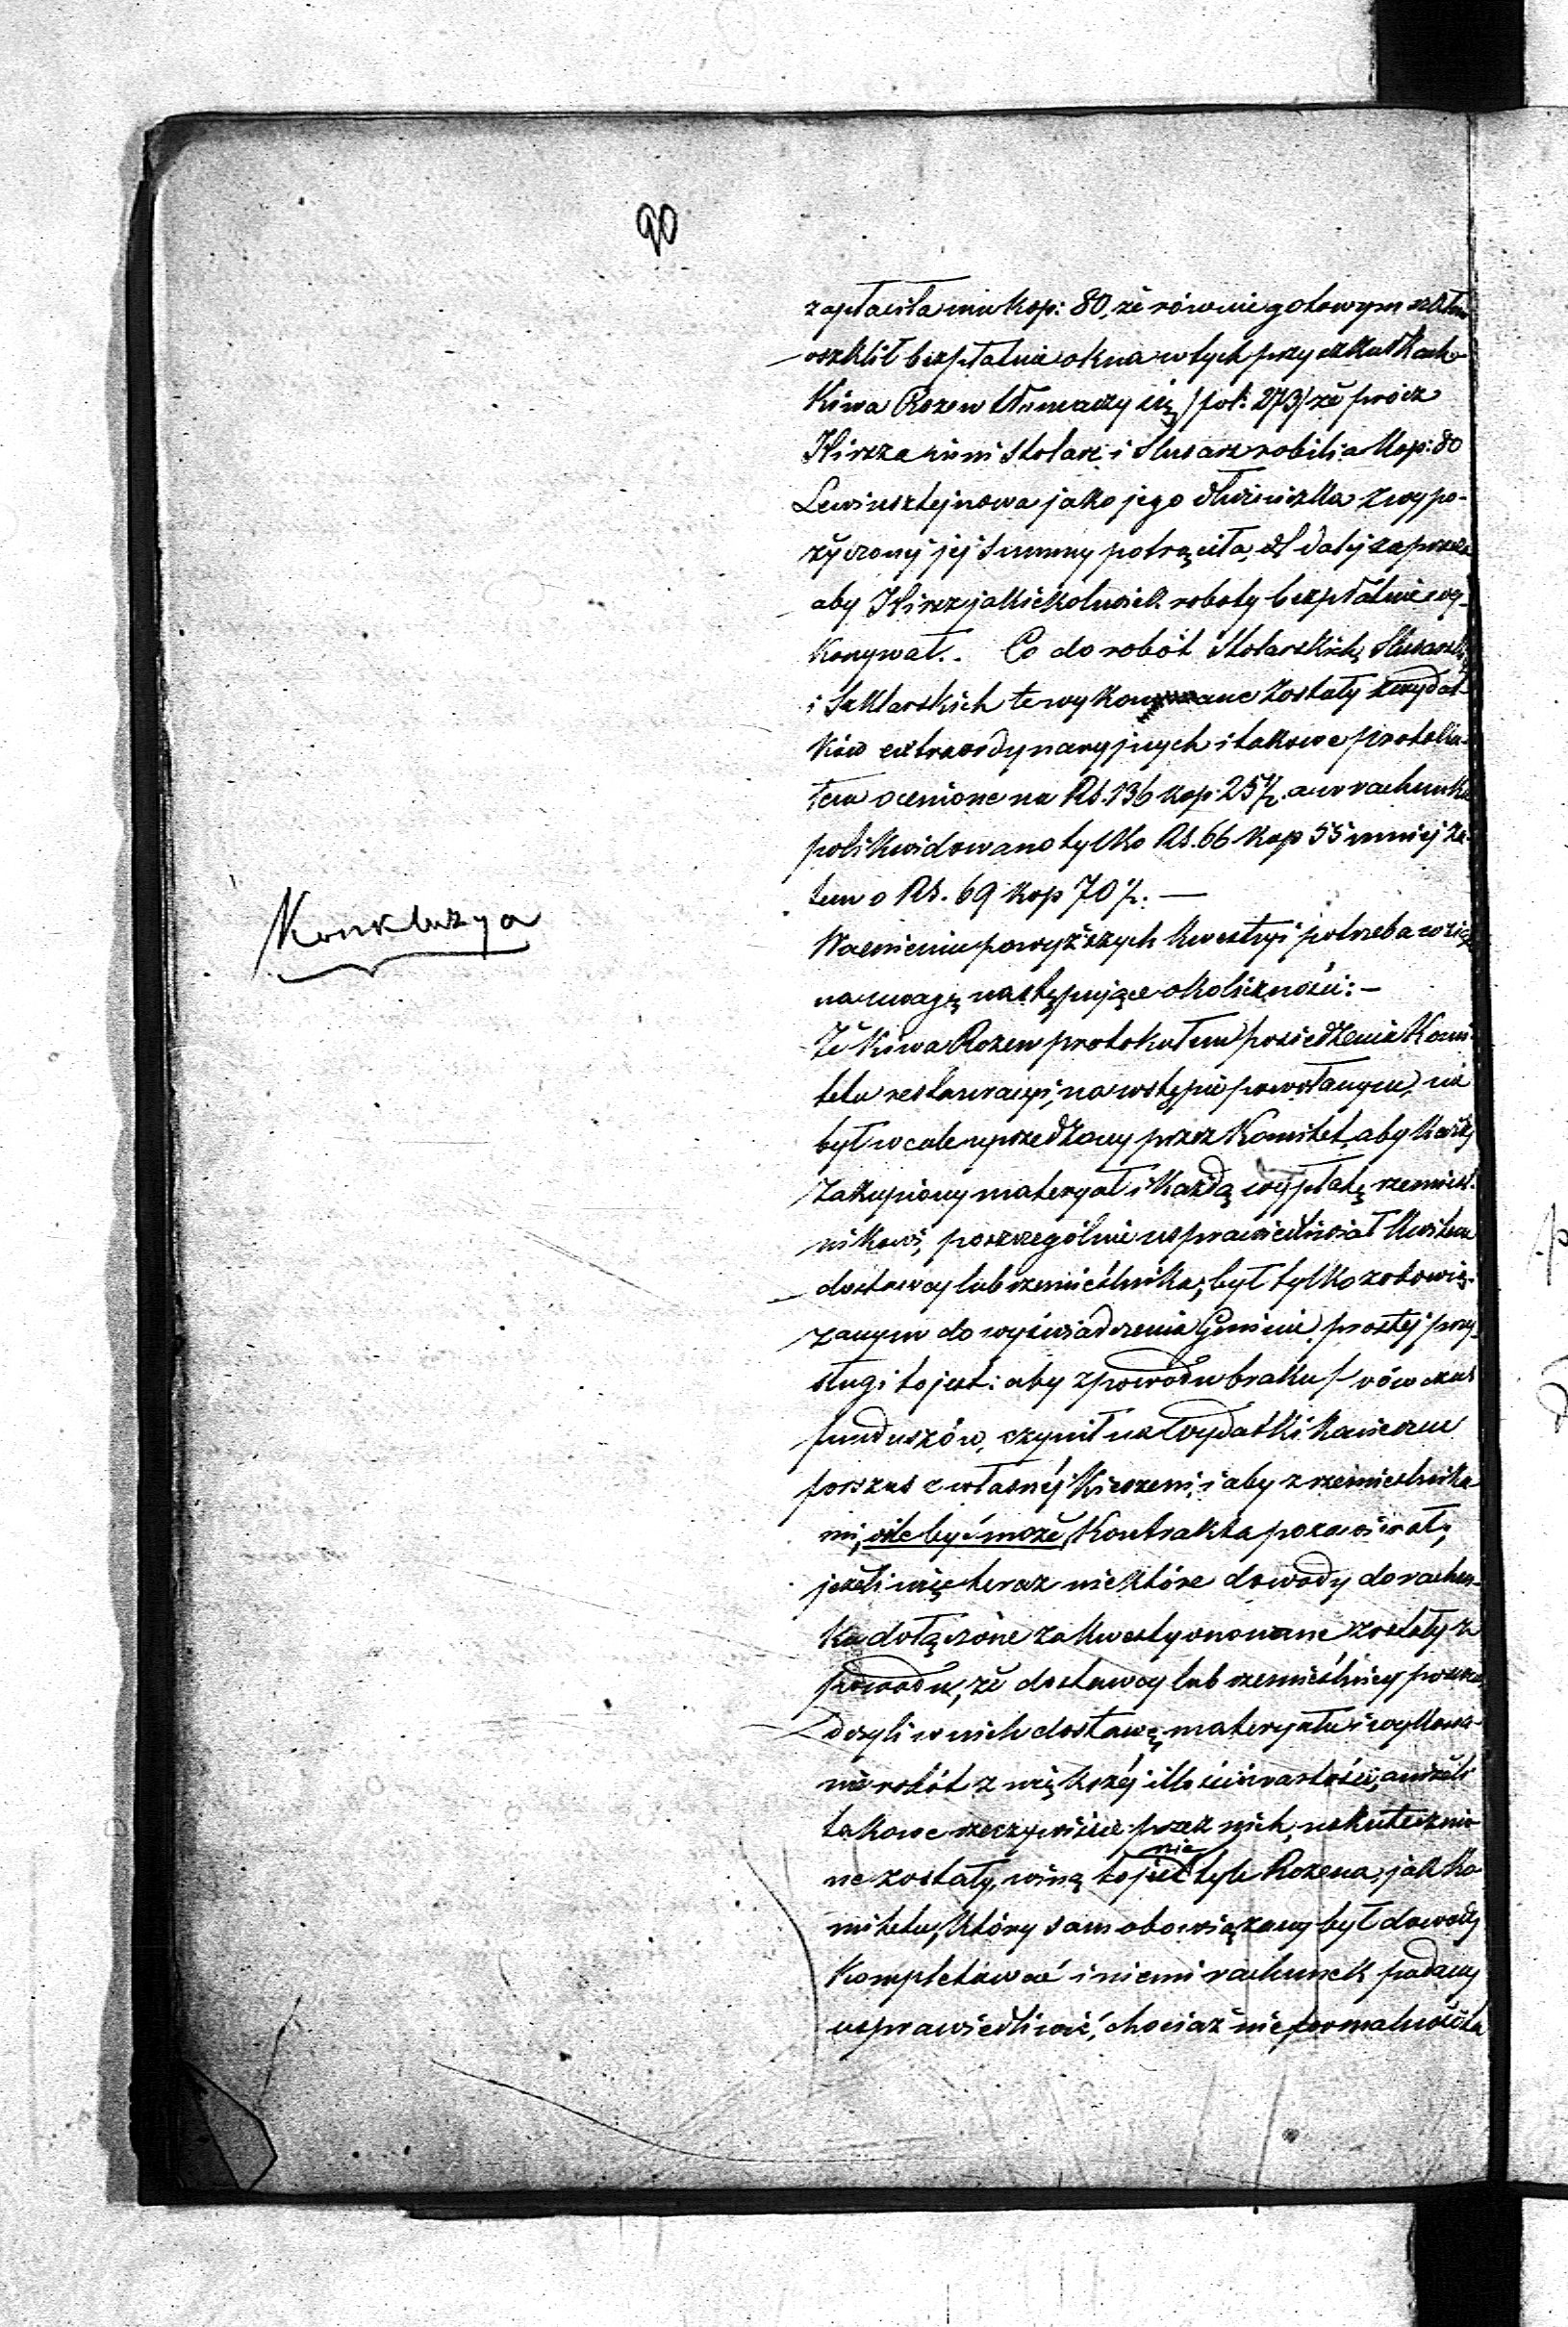 90
zapłaciła mu kop: 80, że równie gotowym szkłem
oszklił bezpłatnie okna w tych przy
Kiwa Rozen tłumaczy się /pol: 273/ że prócz
Hirsza inni Stolarz i Slusarz robili a Kop: 80
Lewinsztejnowa jako jego dłużniczka z wypo-
życzonéj jéj Summy potrąciła, daléj zaprzecza
aby Hirsz jakiekolwiek roboty bezpłatnie wy-
konywał.. Co do robót Stolarskich, Slusarsk
i Szklarskich te wykonane Zostały z wydat-
ków extraordynaryjnych i takowe protoku-
łem ocenione na Rs. 136 kop: 25½. a w rachunku
polikwidowano tylko Rs. 66 kop 55 mniéj za-
tem o Rs. 69 kop 70½. —
Konkluzya
W ocenieniu powyższych kwestyi potrzeba wziąść
na uwagę następujące okoliczności: —
Że Kiwa Rozen protokułem posiedzenia Komi-
tetu restauracyi, na wstępie powołanym, nie
był wcale uprzedzony przez Komitet, aby każdy
Zakupiony materyał i każdą wypłatę rzemieśl-
nikowi, poszczególnie usprawiedliwiał Kwitem
dostawcy lub rzemieślnika; był tylko zobowią-
zanym do wyświadczenia Gminie prostéj przy-
sługi to jest: aby z powodu braku wówczas
funduszów, czynił na Wydatki konieczne
forszus z własnéj kieszeni, i aby z rzemieślnika-
mi, ile być może, Kontrakta pozawierał;
jeżeli więc teraz niektóre dowody do rachun-
ku dołączone zakwestyonowane zostały z
powodu, że dostawcy lub rzemieślnicy
w nich dostawę materyału i wykona-
nie robót z większéj illości i wartości, aniżeli
takowe rzeczywiście przez nich, uskutecznio-
ne zostały, winą to jest nie tyle Rozena, jak Ko-
mitetu, który sam obowiązany był dowody
kompletować i niemi rachunek podany
usprawiedliwić, chociaż nieformalność ta